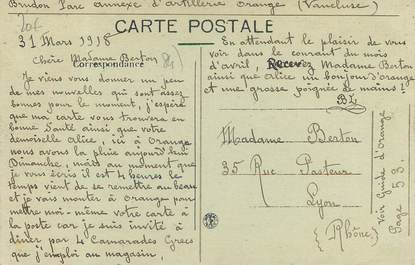 Brudon Parc annexe d'artillerie Orange (Vaucluse)
CARTE POSTALE
31 Mars 1918
Correspondance
Chère Madame Berton
Je viens vous donner un peu
de mes nouvelles qui sont assez
bonnes pour le moment, j'espère
que ma carte vous trouvera en
bonne Santé ainsi que votre
demoiselle alice, ici à Orange
nous avons la pluie aujourd'hui
Dimanche, mais au moment que
je vous écris il est 4 heures le
temps vient de se remettre au beau
et je vais monter à Orange pour
mettre moi-même votre carte à
la poste car je suis invité à
diner par 4 Camarades Grecs
que j'emploi au magasin,
En attendant le plaisir de vous
voir dans le courant du mois
d'avril, Recevez Madame Berton
ainsi que alice un bonjour d'orange
et une grosse poignée de mains!
Madame Berton
35 Rue Pasteur
Lyon
(Rhône)
Voir Guide d'Orange
Page 53.